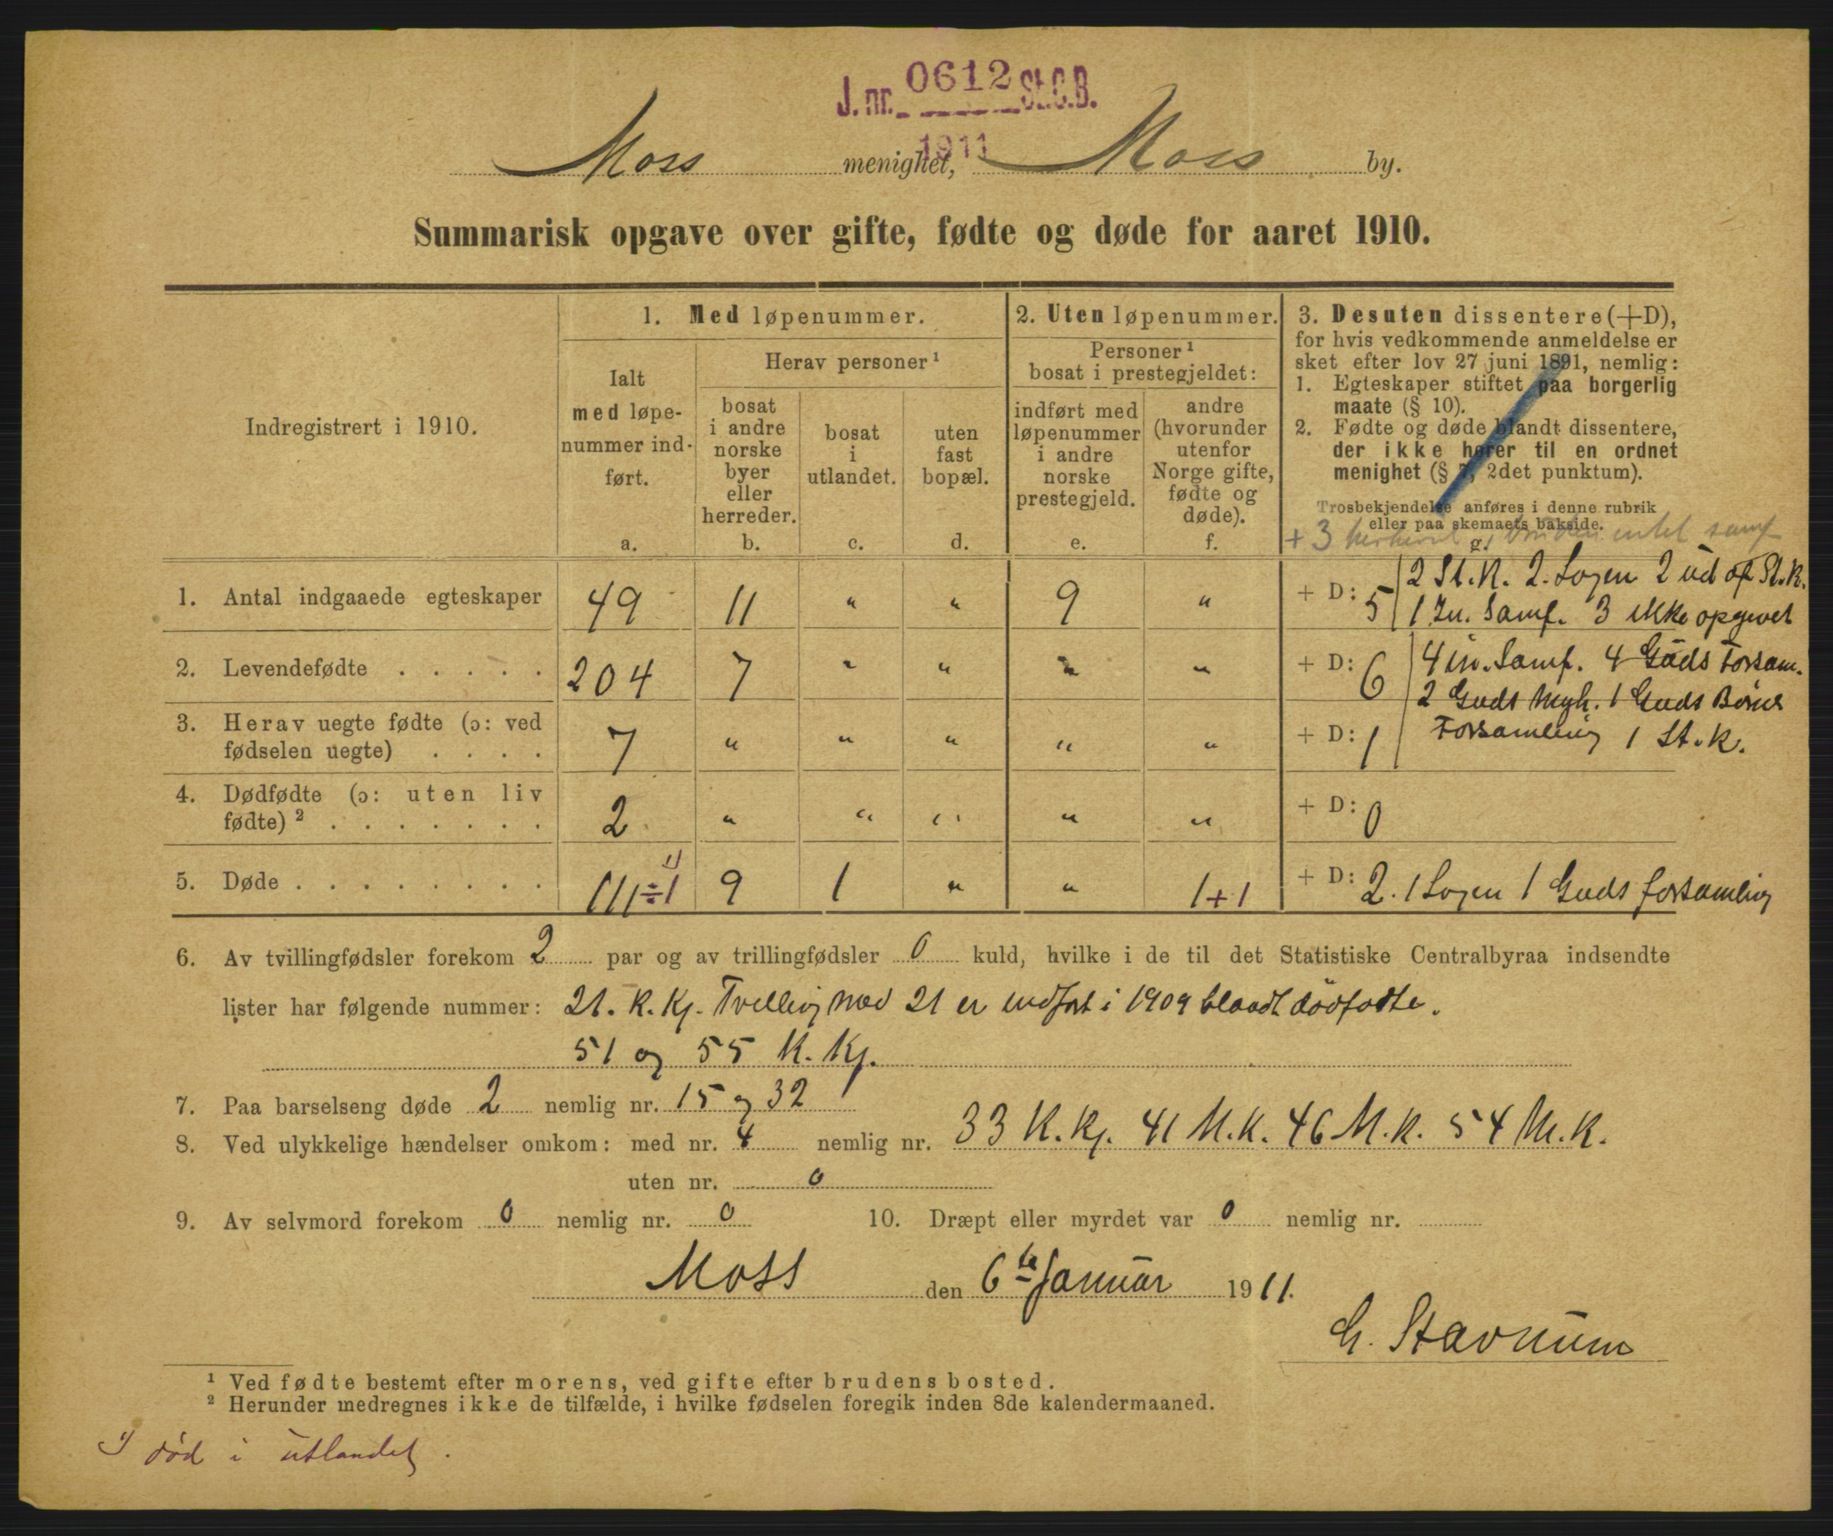 J. nr. 0612 St.C.B.
1911
Moss menighet, Moss by.
Summarisk opgave over gifte, fødte og døde for aaret 1910.
Indregistrert i 1910.
1. Med løpenummer.
Ialt
med løpe-
nummer ind-
ført.
a.
Herav personer ¹
bosat
i andre
norske
byer
eller
herreder.
b.
bosat
i
utlandet.
c.
uten
fast
bopæl.
d.
2. Uten løpenummer.
Personer ¹
bosat i prestegjeldet:
indført med
løpenummer
i andre
norske
prestegjeld.
e.
andre
(hvorunder
utenfor
Norge gifte,
fødte og
døde).
f.
3. Desuten dissentere (+D),
for hvis vedkommende anmeldelse er
sket efter lov 27 juni 1891, nemlig:
1. Egteskaper stiftet paa borgerlig
maate (§ 10).
2. Fødte og døde blandt dissentere,
der ikke hører til en ordnet
menighet (§ 7, 2det punktum).
Trosbekjendelse anføres i denne rubrik
eller paa skemaets bakside.
g.
+ 3
1. Antal indgaaede egteskaper 49 11 " " 9 " + D: 5 2 St.K. 2. Logen 2 ud af St.K.
1 In. Samf. 3 ikke opgivet
2. Levendefødte . . . . . 204 7 " " " " + D: 6 4 in. Samf. 4 Guds Forsam.
2 Guds Mgh. 1 Guds Børns
3. Herav uegte fødte (ɔ: ved
fødselen uegte) . . . . 7 " " " " " + D: 1 Forsamling 1 St.K.
4. Dødfødte (ɔ: uten liv
fødte) ² . . . . . . . 2 " " " " " + D: 0
5. Døde . . . . . . . . 111÷1 ¹) 9 1 " " 1+1 + D: 2. 1 Logen 1 Guds forsamling
6. Av tvillingfødsler forekom 2 par og av trillingfødsler 0 kuld, hvilke i de til det Statistiske Centralbyraa indsendte
lister har følgende nummer: 21. K. Kj. Tvilling med 21 er indført i 1909 blandt dödfødte.
51 og 55 K. Kj.
7. Paa barselseng døde 2 nemlig nr. 15 og 32
8. Ved ulykkelige hændelser omkom: med nr. 4 nemlig nr. 33 K. Kj. 41 M.K. 46 M.K. 54 M.K.
uten nr. 0
9. Av selvmord forekom 0 nemlig nr. 0 10. Dræpt eller myrdet var 0 nemlig nr.
Moss den 6te Januar 1911.
G. Stavnum
¹ Ved fødte bestemt efter morens, ved gifte efter brudens bosted.
² Herunder medregnes ikke de tilfælde, i hvilke fødselen foregik inden 8de kalendermaaned.
¹) död i utlandet.